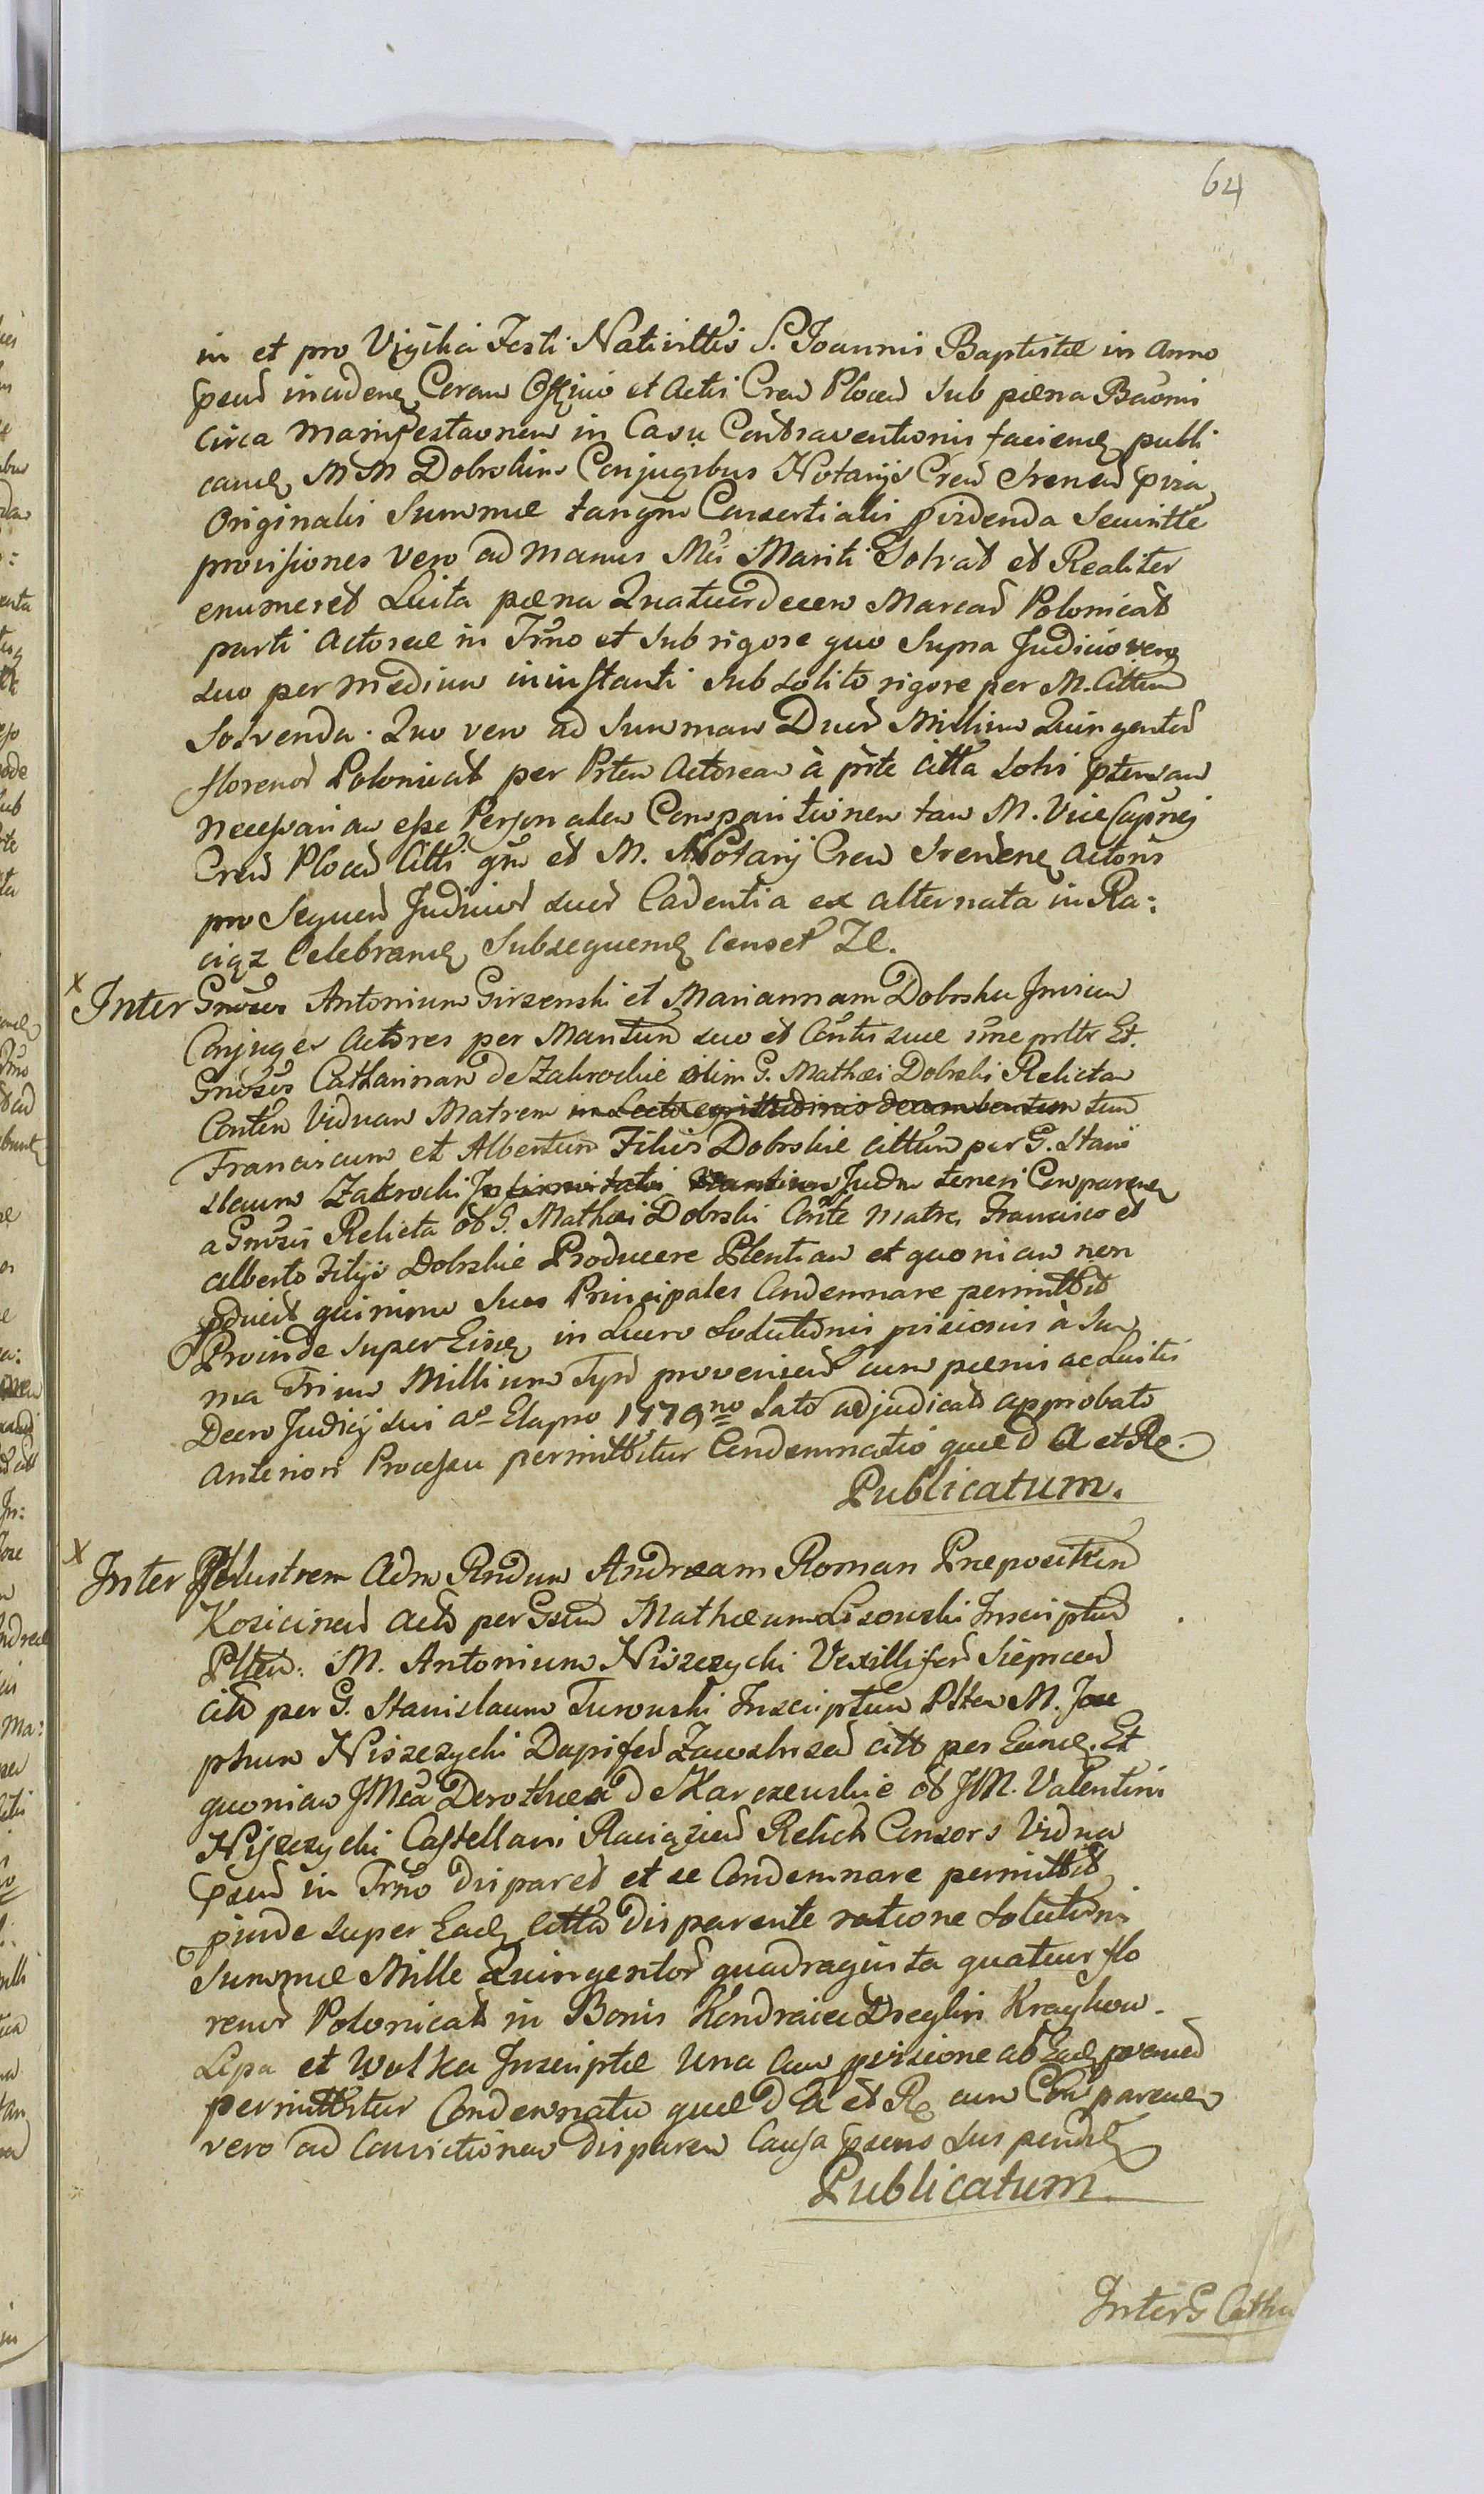 64
in et pro Vigilia Festi Nativittis S. Joannis Baptistæ in Anno
psend incidenq Coram Officio et Actis Cren Plocen sub pæna Baōnis
circa manifestaōnem in Casu Contraventionis faciendq publi
candq MM Dobrskim Conjugibus Notarijs Cren Srenen
Originalis Summæ tanqm Consertialis
provisiones vero ad manus Mci Mariti Solvat et Realiter
enumeret Luita pæna Quatuordecem Marcar Polonical
parti Actoreæ in Trno et sub rigore quo supra Judicio vero
suo per medium in instanti sub solito rigore per M. Cittum
Solvenda. Quo vero ad summam Duor Millium Quingentor
florenor Polonical per Prtem Actoream à prte citta solvi ptensam
necessariam esse Personalem Comparitionem tam M. Vice Capnej
Cren Plocen Citti qm et M. Notarij Cren Srenene Actoris
pro Sequen Judicior suor Cadentia ex alternata in Ra:
ciąz Celebrandq Subsequendq censet Ze.
x Inter Gnosos Antonium Girzenski et Mariannam Dobrska Invicem
Conjuges Actores per Maritum suo et Contis suæ nne prtte Et
Gnosos Catharinam de Zakrockie olim G. Mathæi Dobrski Relictam
Contem Viduam Matrem in Lecto egrittudinis decumbentem tum
Franciscum et Albertum Filios Dobrskie cittum per G. Stanis
slaum Zakrocki Infirmitatis Judm teneri Comparenq
a Gnosis Relicta ob G. Mathæi Dobrski Conte Matre Francisco et
Alberto Filijs Dobrskie Producere Plentiam et quoniam non
pducit quinimo suos Principales Condemnare permittit
Proinde super Eisdq in Lucro Solutionis pvisionis à Sum
ma Trium Millium Tynf provenien cum pænis ac Luitis
Decro Judicij sui ao Elapso 1779no Lato adjudicat approbato
Anteriori Processu permittitur Condemnatio quæ d A et Re.
Publicatum.
x Inter Illustrem Adm Rndum Andræam Roman Præpositum
Kosicinen Act per Gsum Mathæum Lisowski Inscriptum
Pltem. M. Antonium Niszczycki Vexillifer Siepcen
citt per G. Stanislaum Turowski Inscriptum Pltem M. Jose
phum Niszczycki Dapifer Zawskrzen citt per Eund. Et
quoniam JMca Dorothea de Karczewskie ob JM. Valentini
Niszczycki Castellani Raciązien Relicta Consors Vidua
psen in Trno disparet et se Condemnare permittit
pinde super Eadq Citta disparente ratione solutionis
summæ Mille Quingentor quadraginta quatuor flo
renor Polonical in Bonis Kondraiec Dreglin Kraykow
Lipa et Wolka Inscriptæ una cum pvisione ab Eadq provenien
permittitur Condemnatio quæ d A et Re cum Comparenq
vero ad Convictionem disparen Causa psens suspendq
Publicatum
Inter G Catha